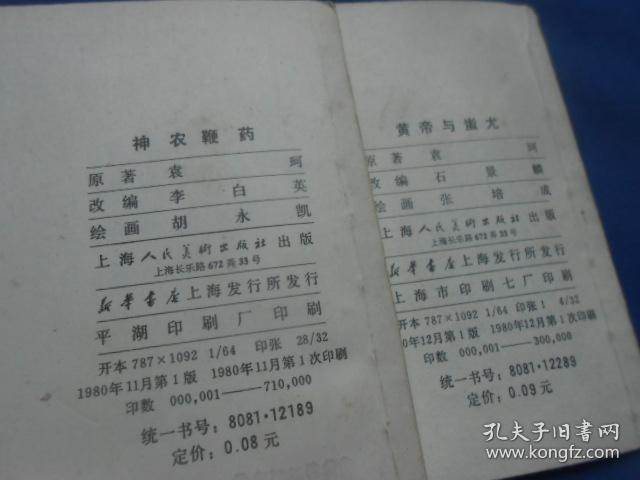 神农鞭药
原著 袁珂
改编 李白英
绘画 胡永凯
上海人民美術出版社出版
上海长乐路672弄33号
新华書店上海发行所发行
平湖印刷厂印刷
开本 787×1092 1/64 印张 28/32
1980年11月第1版 1980年11月第1次印刷
印数 000,001—710,000
统一书号：8081·12189
定价：0.08元
黄帝与蚩尤
原著 袁珂
改编 石景麟
绘画 张培成
上海人民美術出版社出版
上海长乐路672弄33号
新华書店上海发行所发行
上海市印刷七厂印刷
开本 787×1092 1/64 印张 1 4/32
0年12月第1版 1980年12月第1次印刷
印数 000,001—300,000
统一书号：8081·12289
定价：0.09元
孔夫子旧书网
www.kongfz.com